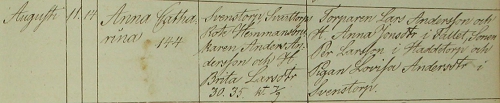 Augusti 11. 14 Anna Catha
rina
144
Svenstorp Svartorp
Rote Hemmansbru
karen Anders An
dersson och H.
Brita Larsdtr
30. 35 
Torparen Lars Andersson och
H. Anna Jonsdtr i Hallet, Sonen
Per Larsson i Haddtorp och
Pigan Lovisa Andersdtr i
Svenstorp.